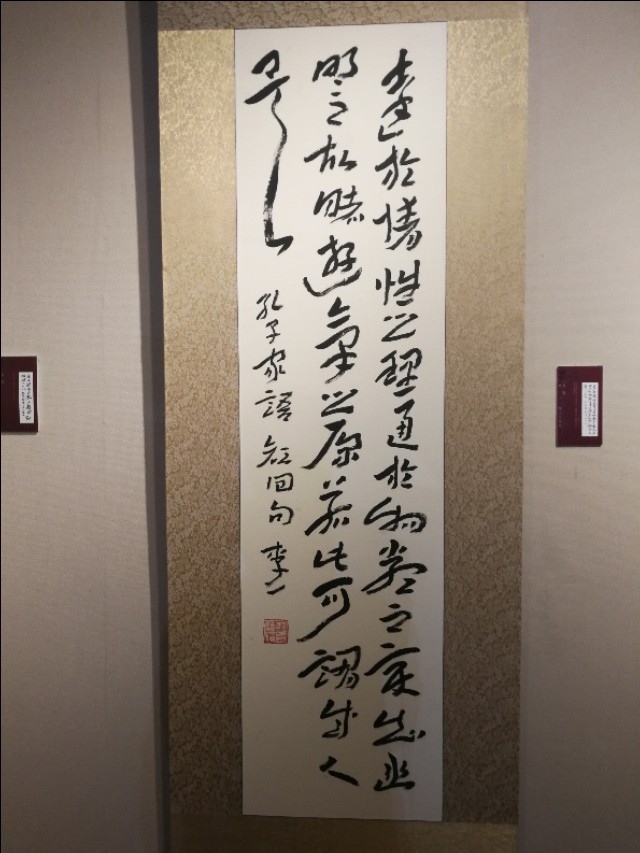 達於情性之理通於物类之变知幽
明之故睹遊氣之原若此可謂成人
矣 孔子家語 颜回句 李一